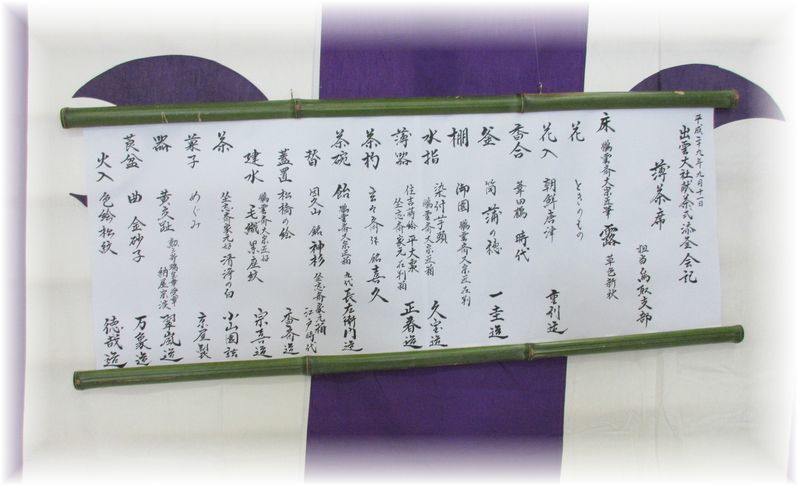 平成二十九年九月十一日
出雲大社献茶式添釜会記
薄茶席
担当 鳥取支部
床 鵬雲斎大宗匠筆 露 草色新状
花 ときのもの
花入 朝鮮唐津 重利造
香合 時代
釜 筒 蒲の穂 一圭造
棚 御園 鵬雲斎大宗匠在判
水指 染付芋頭 鵬雲斎大宗匠箱 久宗造
薄器 住吉蒔絵 平大棗 坐忘斎家元在判箱 正春造
茶杓 玄々斎作 銘 喜久
茶碗 飴 鵬雲斎大宗匠箱 九代 長左衛門造
替 因久山 銘 神杉 坐忘斎家元箱 江戸時代
蓋置 松橋の絵 香斎造
建水 鵬雲斎大宗匠好 毛織 累座紋 宗喜造
茶 坐忘斎家元好 清浄の白 小山園詰
菓子 めぐみ 京屋製
器 黄交趾 翠嵐造
莨盆 曲 金砂子 万象造
火入 色絵松紋 徳哉造